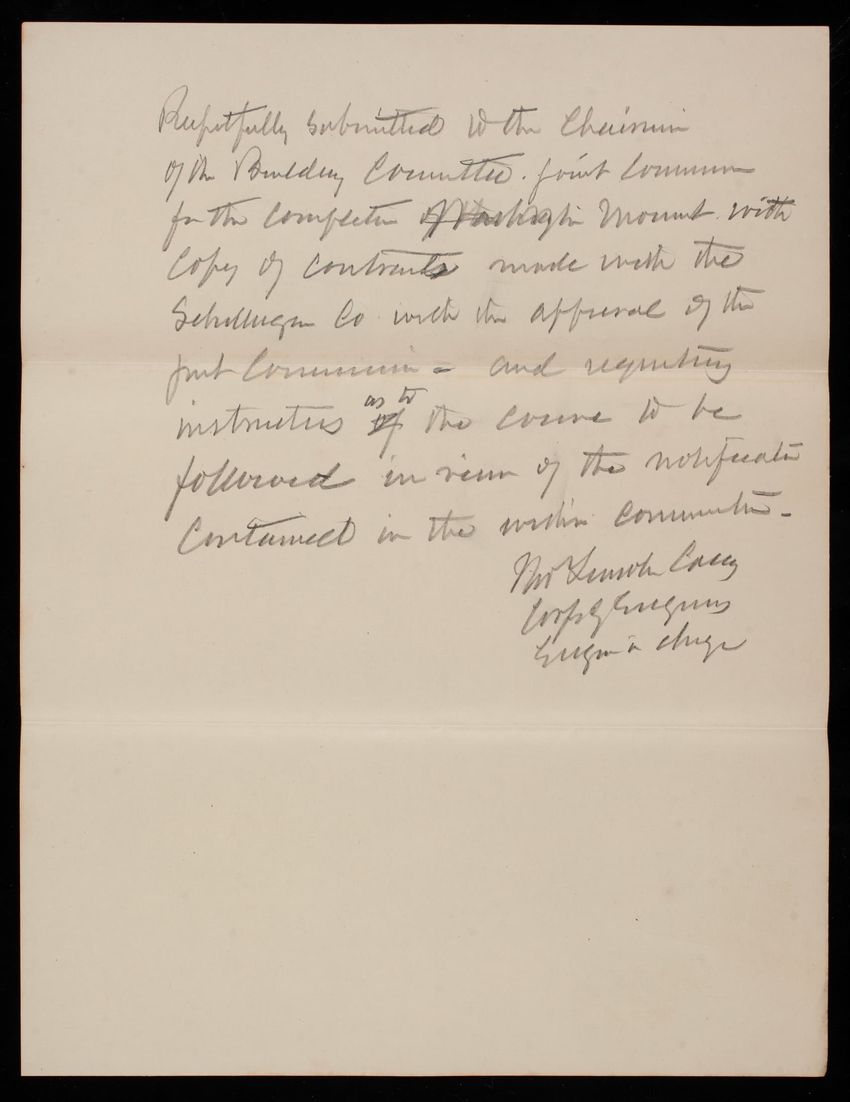 Respectfully submitted to the Chairman
of the Building Committee. Joint Commission
for the completion of Washington Monument. with
Copy of contracts made with the
Schillinger Co with the approval of the
joint Commission = and requesting
instructions as to the course to be
followed in view of the notification
Contained in the within communication -
Thos Lincoln Casey
Corps of Engineers
Engineer in charge